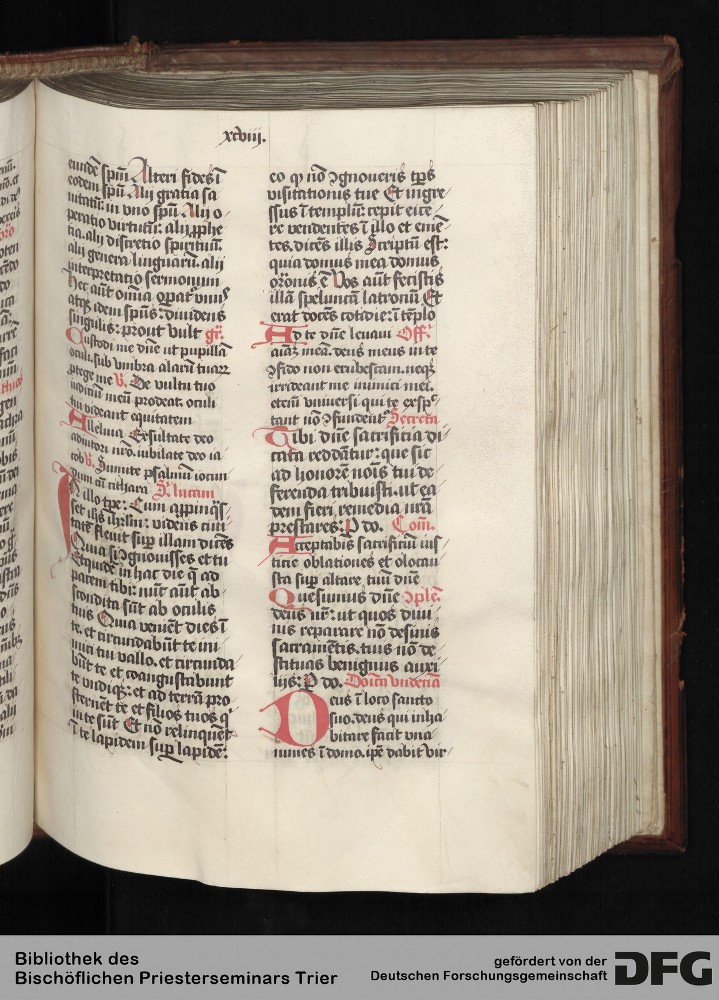 xcviii.
eiusdē spm̄ Alteri fides ī
eodem spū Alij gratia sa
nitatū: in vno spū Alij o-
peratio virtutū: alij ꝓphe
tia. alij discretio spirituū.
alij genera linguarū. alij
interpretatio sermonum
Hec aūt omīa oꝑat᷑ vnus
atqꝫ idem spūs: diuidens
singulis: prout vult gr̄.
Custodi me dn̄e ut pupillā
oculi. sub vmbra alarū tuaꝝ
ꝓtege me v̄. De vultu tuo
iudiciū meū prodeat. oculi
tui videant equitatem
Alleluia Exsultate deo
adiutori nr̄o. iubilate deo ia
cob v̄. Sumite psalmū iocun
dum cū cithara S. Lucam
In illo tꝑe: Cum appinq̄s
set ih̄s ih̄rlm̄: videns ciui
tatē fleuit suꝑ illam dicēs
Quia si ꝯgnouisses et tu
Et quidē in hac die q̄ ad
pacem tibi: nūc aūt ab-
scondita sūt ab oculis
tuis Quia veniēt dies ī
te. et circundabūt te ini
mici tui vallo. et circunda
būt te et coangustabunt
te vndiqꝫ: et ad terrā pro
sternēt te et filios tuos q'
in te sūt Et nō relinquēt
ī te lapidem suꝑ lapidē:
eo ꝙ nō ꝯgnoueris tp̄s
visitationis tue Et ingre-
ssus ī templū: cepit eice-
re vendentes ī illo et emē-
tes. dicēs illis Scriptū est:
quia domus mea domus
or̄onis ē Vos aūt fecistis
illā speluncā latronū Et
erat docēs cotidie: ī tēplo
Ad te dn̄e leuaui Off.
aīaꝫ meā. deus meus in te
ꝯfido non erubescam. neqꝫ
irrideant me inimici mei.
etem̄ vniuersi qui te exsp̄c
tant nō ꝯfundent᷑ Secreta
Tibi dn̄e sacrificia di
cata reddāt᷑: que sic
ad honorē noīs tui de-
ferenda tribuisti. ut ea
dem fieri remedia nr̄a
prestares: P do. Com̄.
Acceptabis sacrificiū ius-
ticie oblationes et olocau
sta suꝑ altare tuū dn̄e
Quesumus dn̄e ꝯplē.
deus nr̄: ut quos diui
nis reparare nō desinis
sacramētis. tuis nō de-
stituas benignus auxi
lijs: P do. Domīca vndecīa
Deus ī loco sancto
suo. deus qui inha
bitare facit vna
nimes ī domo. ip̄e dabit vir-
Bibliothek des
Bischöflichen Priesterseminars Trier
gefördert von der
Deutschen Forschungsgemeinschaft
DFG